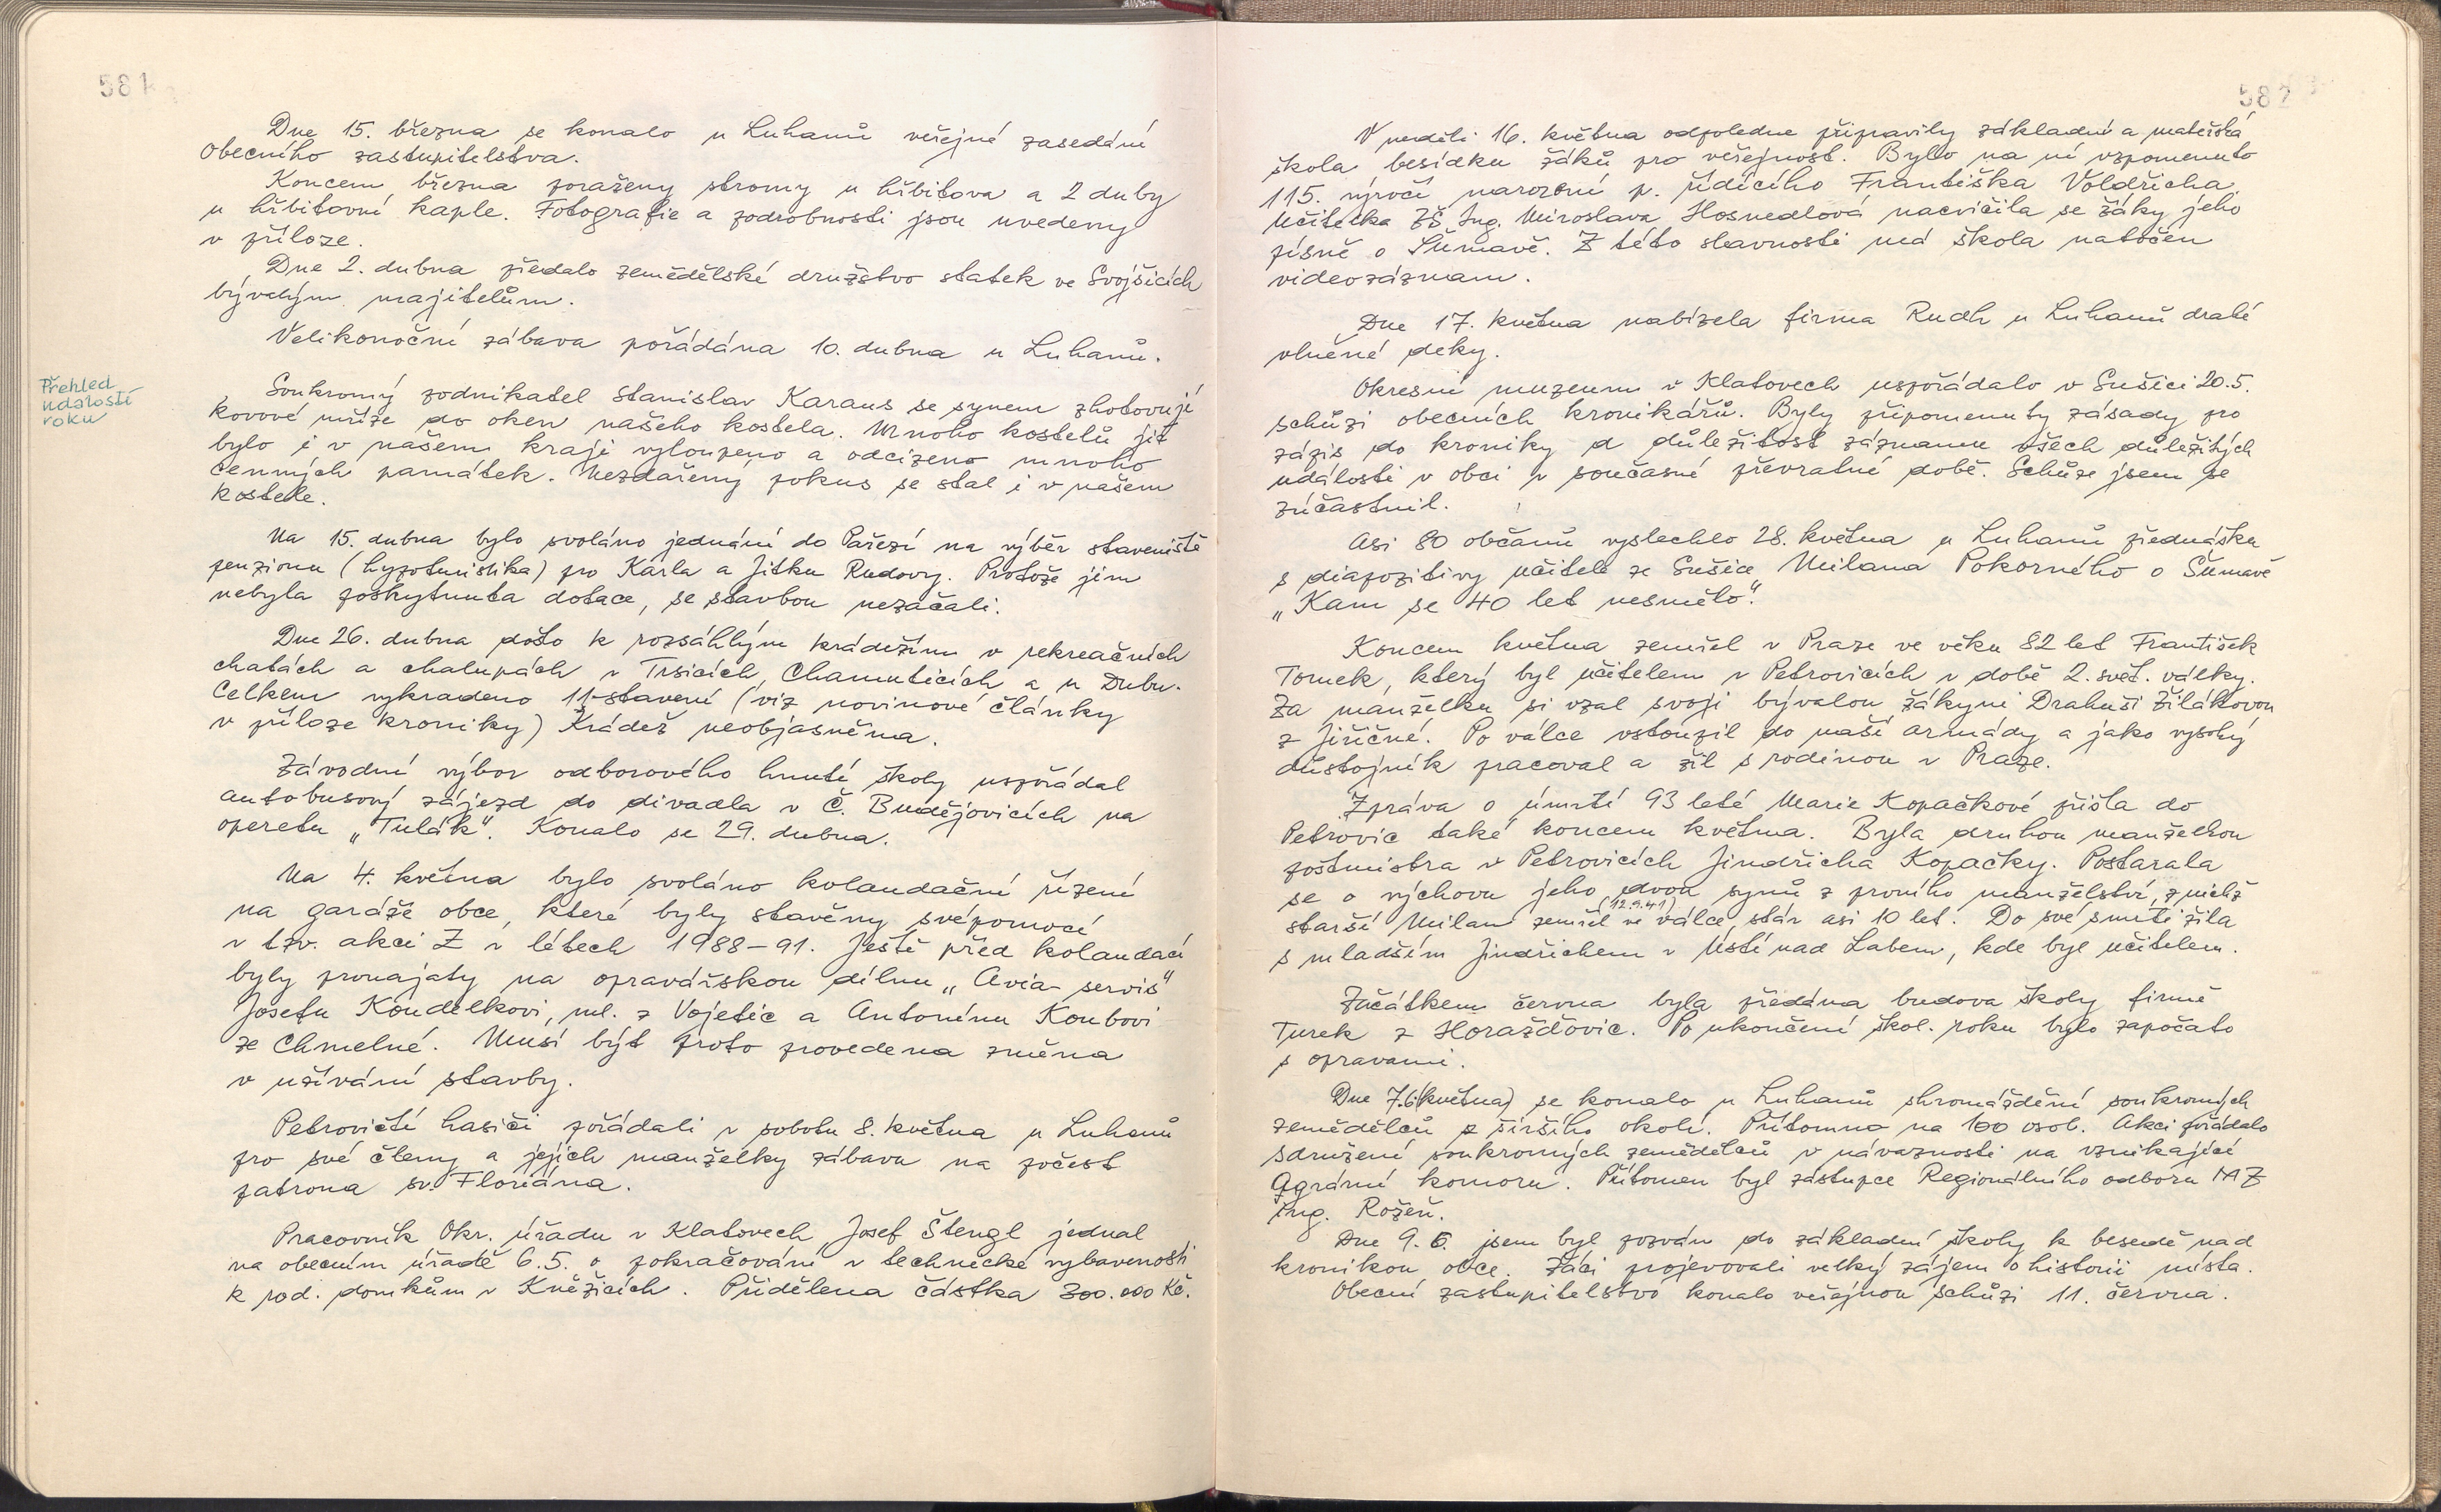 581
Dne 15. března se konalo u Luhanů veřejné zasedání
Obecního zastupitelstva.
Koncem března poraženy stromy u hřbitova a 2 duby
u hřbitovní kaple. Fotografie a podrobnosti jsou uvedeny
v příloze.
Dne 2. dubna předalo zemědělské družstvo statek ve Svojšicích
bývalým majitelům.
Velikonoční zábava pořádána 10. dubna u Luhanů.
Přehled
událostí
roku
Soukromý podnikatel Stanislav Karaus se synem zhotovují
kovové mříže do oken našeho kostela. Mnoho kostelů již
bylo i v našem kraji vyloupeno a odcizeno mnoho
cenných památek. Nezdařený pokus se stal i v našem
kostele.
Na 15. dubna bylo svoláno jednání do Pařezí na výběr staveniště
penzionu (hypoturistika) pro Karla a Jitku Rudovy. Protože jim
nebyla poskytnuta dotace, se stavbou nezačali.
Dne 26. dubna došlo k rozsáhlým krádežím v rekreačních
chatách a chalupách v Trsicích, Chamuticích a u Dubu.
Celkem vykradeno 11 stavení (viz novinové články
v příloze kroniky) Krádež neobjasněna.
Závodní výbor odborového hnutí školy uspořádal
autobusový zájezd do divadla v Č. Budějovicích na
operetu „Tulák". Konalo se 29. dubna.
Na 4. května bylo svoláno kolaudační řízení
na garáže obce, které byly stavěny svépomocí
v tzv. akci Z v létech 1988-91. Ještě před kolaudací
byly pronajaty na opravářskou dílnu „Avia-servis"
Josefu Koudelkovi, ml. z Vojetic a Antonínu Koubovi
ze Chmelné. Musí být proto provedena změna
v užívání stavby.
Petrovičtí hasiči pořádali v sobotu 8. května u Luhanů
pro své členy a jejich manželky zábavu na počest
patrona sv. Floriána.
Pracovník Okr. úřadu v Klatovech Josef Štengl jednal
na obecním úřadě 6.5. o pokračování v technické vybavenosti
k rod. domkům v Kněžicích. Přidělena částka 300.000 Kč.
582
V neděli 16. května odpoledne připravily základní a mateřská
škola besídku žáků pro veřejnost. Bylo na ní vzpomenuto
115. výročí narození p. řídícího Františka Voldřicha.
Učitelka ZŠ Ing. Miroslava Hosnedlová nacvičila se žáky jeho
písně o Šumavě. Z této slavnosti má škola natočen
videozáznam.
Dne 17. května nabízela firma Rudh u Luhanů drahé
vlněné deky.
Okresní muzeum v Klatovech uspořádalo v Sušici 20.5.
schůzi obecních kronikářů. Byly připomenuty zásady pro
zápis do kroniky a důležitost záznamu všech důležitých
událostí v obci v současné převratné době. Schůze jsem se
zúčastnil.
Asi 80 občanů vyslechlo 28. května u Luhanů přednášku
s diapozitivy učitele ze Sušice Milana Pokorného o Šumavě
„Kam se 40 let nesmělo".
Koncem května zemřel v Praze ve věku 82 let František
Tomek, který byl učitelem v Petrovicích v době 2. svět. války.
Za manželku si vzal svoji bývalou žákyni Drahuši Žilákovou
z Jiřičné. Po válce vstoupil do naší armády a jako vysoký
důstojník pracoval a žil s rodinou v Praze.
Zpráva o úmrtí 93 leté Marie Kopačkové přišla do
Petrovic také koncem května. Byla druhou manželkou
poštmistra v Petrovicích Jindřicha Kopačky. Postarala
se o výchovu jeho dvou synů z prvního manželství, z nichž
(12.9.41)
starší Milan zemřel ve válce stár asi 10 let. Do své smrti žila
s mladším Jindřichem v Ústí nad Labem, kde byl učitelem.
Začátkem června byla předána budova školy firmě
Turek z Horažďovic. Po ukončení škol. roku bylo započato
s opravami.
Dne 7.6 (května) se konalo u Luhanů shromáždění soukromých
zemědělců z širšího okolí. Přítomno na 100 osob. Akci pořádalo
sdružení soukromých zemědělců v návaznosti na vznikající
Agrární komoru. Přítomen byl zástupce Regionálního odboru MZ
Ing. Rožeň.
Dne 9. 6. jsem byl pozván do základní školy k besedě nad
kronikou obce. Žáci projevovali velký zájem o historii místa.
Obecní zastupitelstvo konalo veřejnou schůzi 11. června.